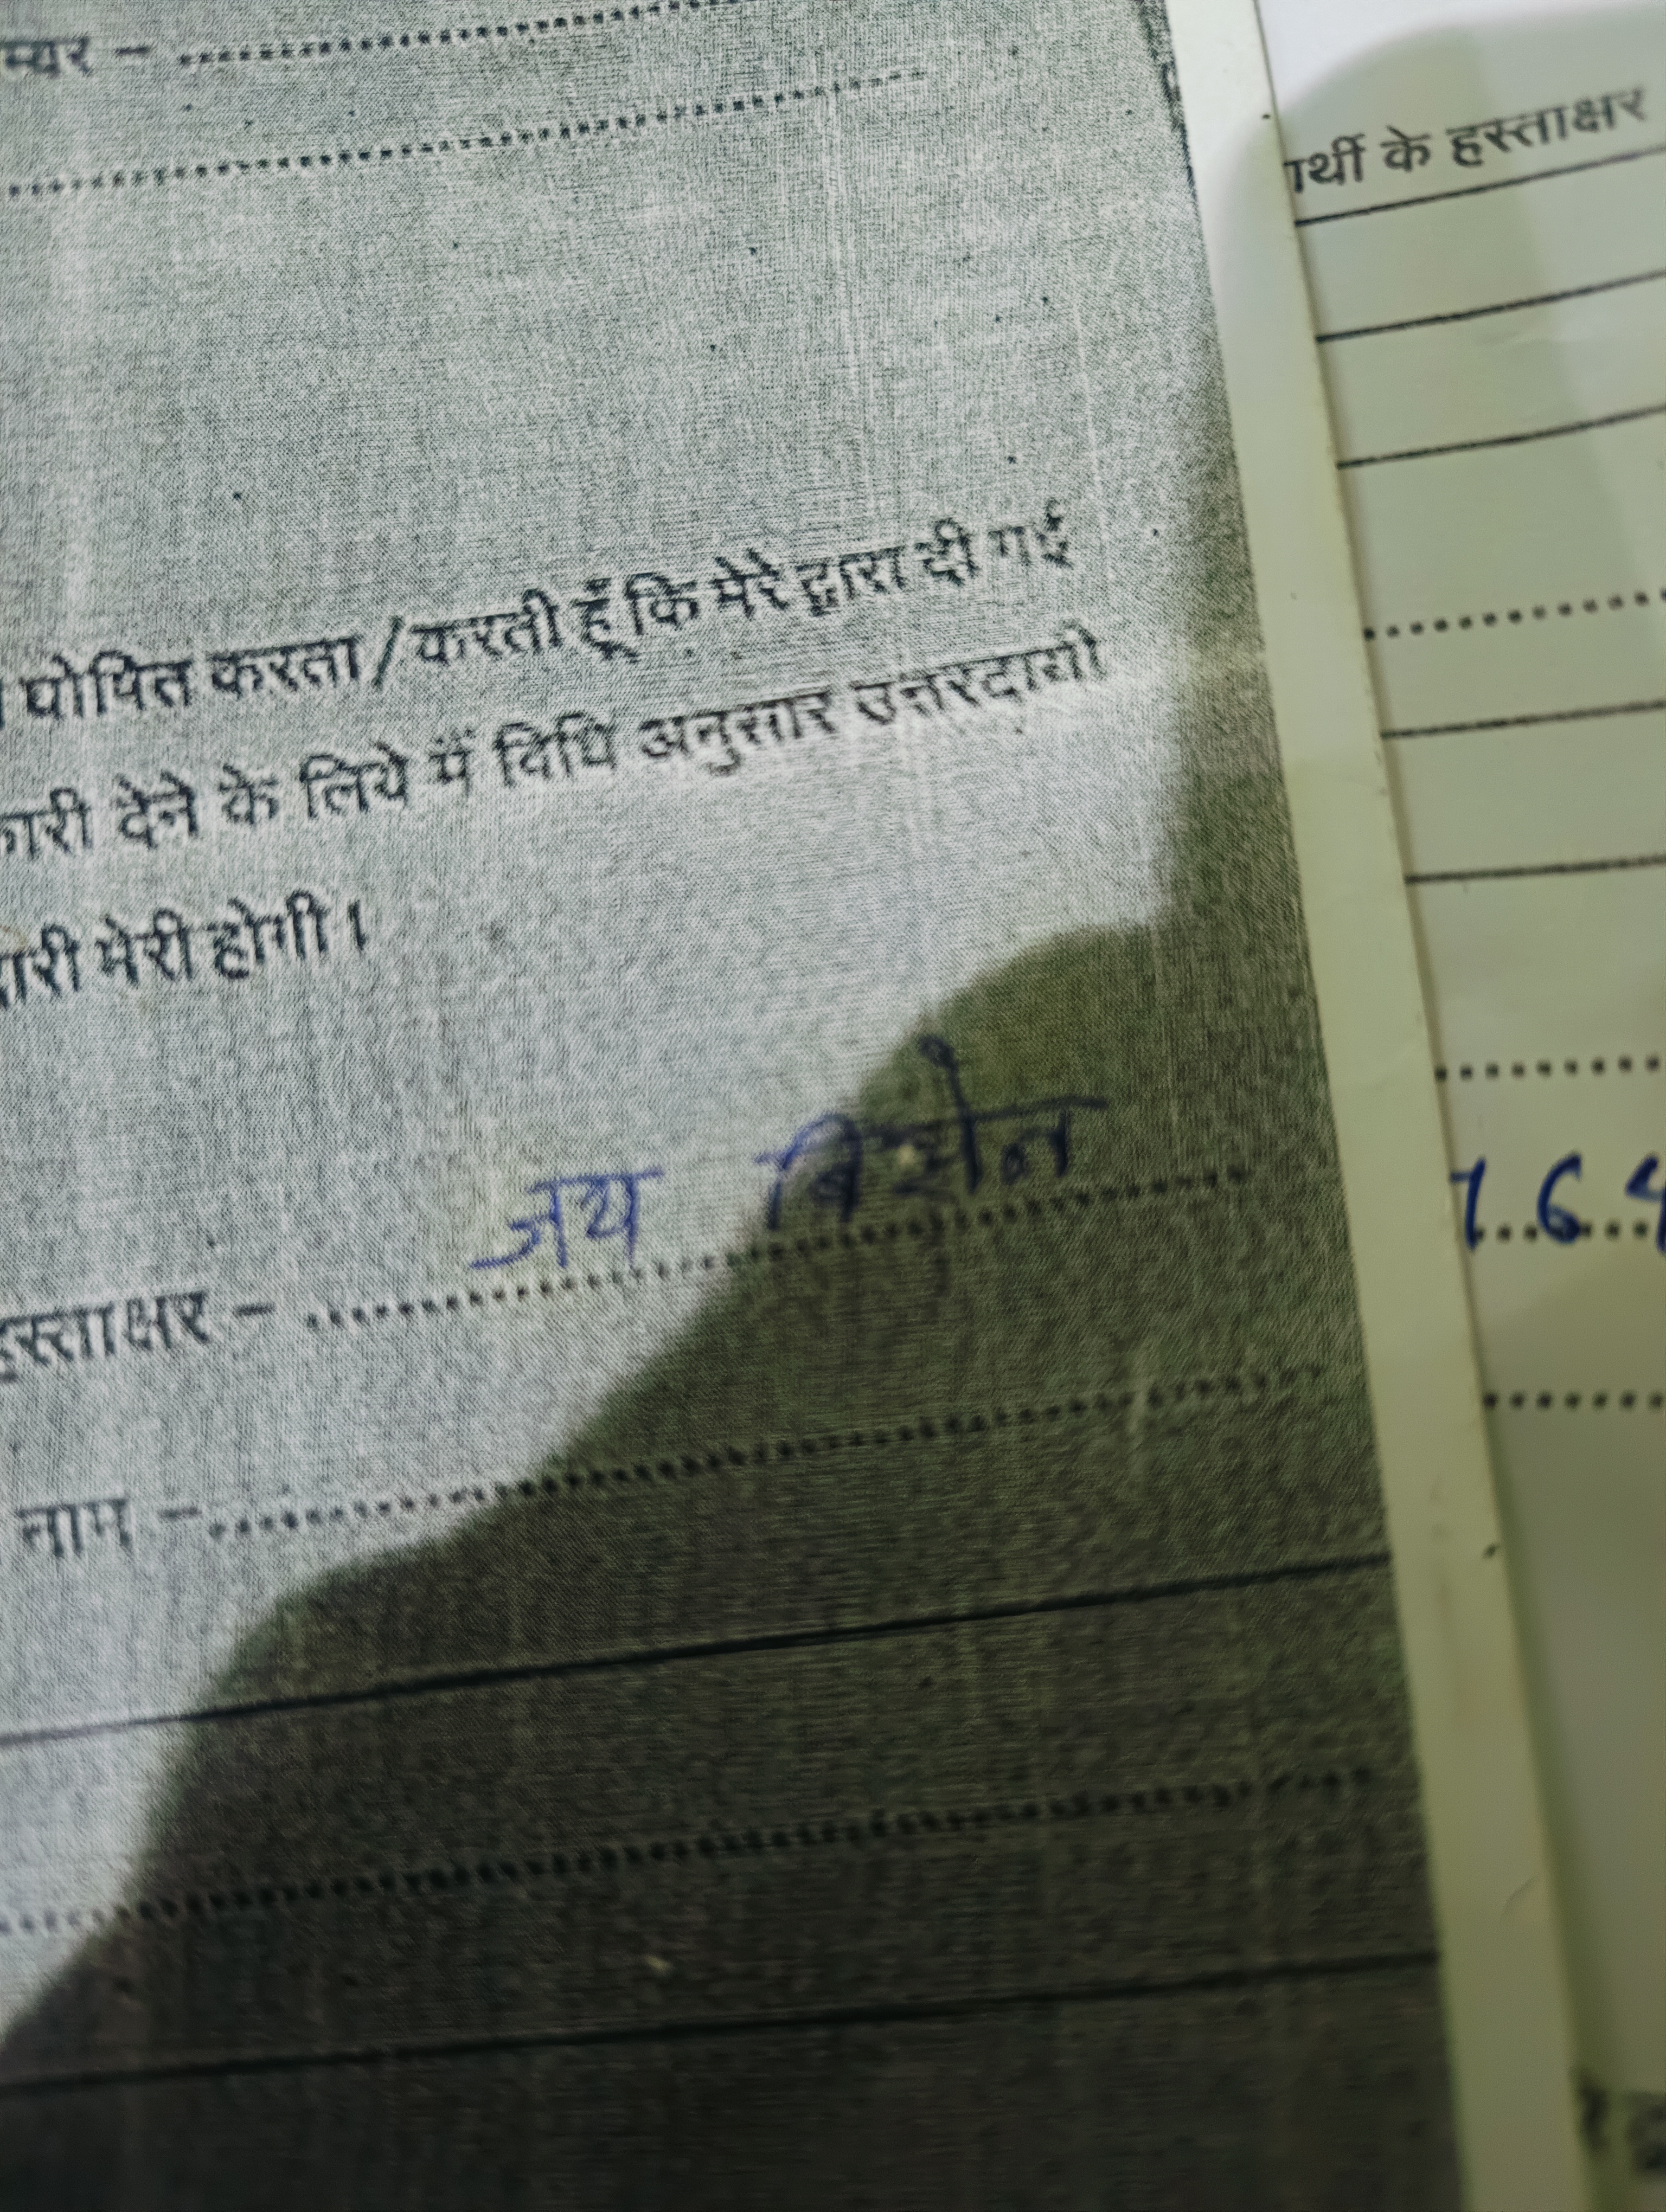 म्बर –
घोषित करता / करती हूँ कि मेरे द्वारा दी गई
कारी देने के लिये मैं विधि अनुसार उत्तरदायी
दारी मेरी होगी।
जय
हस्ताक्षर –
नाम –
ार्थी के हस्ताक्षर
764